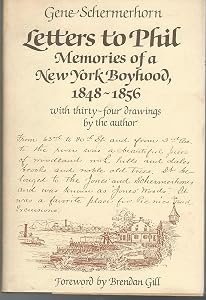 Gene Schermerhorn
Letters to Phil
Memories of a
New York Boyhood,
1848-1856
with thirty-four drawings
by the author
From 65th to 80th St and from 3rd Ave
to the river was a beautiful piece
of woodland with hills and dales
brooks and noble old trees. It be-
longed to the Jones and Schermerhorns
and was known as "Jones' Woods" It
was a favorite place for pic nics and
excursions.
Foreword by Brendan Gill